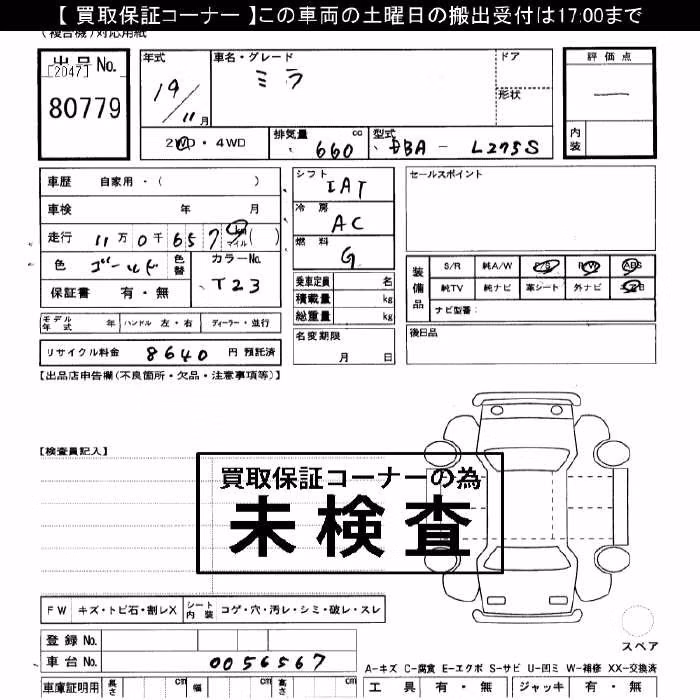 【 買取保証コーナー 】この車両の土曜日の搬出受付は17:00まで
(複合機)対応用紙
出品No.
[2047]
80779
年式
19/11月
車名・グレード
ミラ
ドア
形状
評価点
内装
2WD・4WD
排気量 660 cc
型式 DBA - L275S
車歴 自家用・( )
車検 年 月
走行 11万0千657 km マイル ( )
色 ゴールド 色替
カラーNo. T23
保証書 有・無
シフト IAT
冷房 AC
燃料 G
乗車定員 名
積載量 kg
総重量 kg
セールスポイント
装備品
S/R 純A/W P/S P/W ABS
純TV 純ナビ 革シート 外ナビ エアB
ナビ型番:
モデル年式 年 ハンドル 左・右 ディーラー・並行
名変期限 月 日
後日品
リサイクル料金 8640 円 預託済
【出品店申告欄(不良箇所・欠品・注意事項等)】
【検査員記入】
買取保証コーナーの為
未検査
FW キズ・トビ石・割レX シート内装 コゲ・穴・汚レ・シミ・破レ・スレ
登録No.
車台No. 0056567
スペア
A-キズ C-腐食 E-エクボ S-サビ U-凹ミ W-補修 XX-交換済
車庫証明用 長さ cm 幅 cm 高さ cm
工具 有・無 ジャッキ 有・無